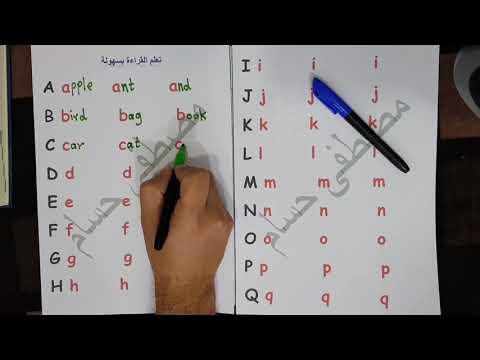 تعلم القراءة بسهولة
A apple ant and
B bird bag book
C car cat c
D d d
E e e
F f f
G g g
H h h
I i i i
J j j j
K k k k
L l l l
M m m m
N n n n
O o o o
P p p p
Q q q q
مصطفى حسام
مصطفى حسام